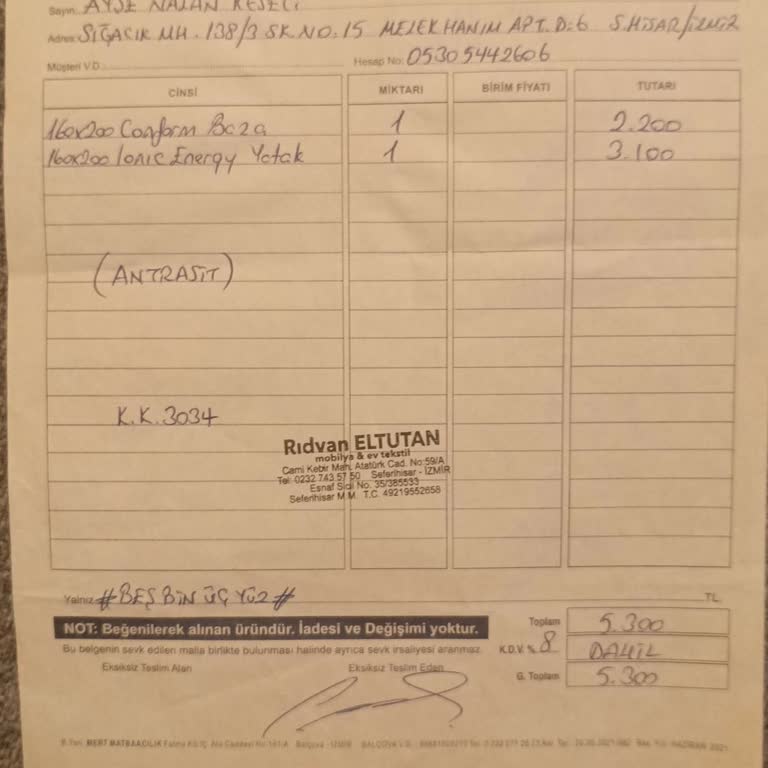 Sayın: AYŞE NALAN KESECİ
Adres: SIĞACIK MH. 138/3 SK. NO: 15 MELEK HANIM APT. D:6 S.HİSAR/İZMİR
Müşteri V.D. Hesap No: 05305442606
CİNSİ MİKTARI BİRİM FİYATI TUTARI
160x200 Conform Baza 1 2.200
160x200 Ionic Energy Yatak 1 3.100
(ANTRASİT)
K.K. 3034
Rıdvan ELTUTAN
mobilya & ev tekstil
Cami Kebir Mah. Atatürk Cad. No:59/A
Tel: 0232 743 57 50 Seferihisar - İZMİR
Esnaf Sicil No. 35/385533
Seferihisar M.M. T.C. 49219552658
Yalnız #BEŞ BİN ÜÇ YÜZ# TL
NOT: Beğenilerek alınan üründür. İadesi ve Değişimi yoktur.
Toplam 5.300
Bu belgenin sevk edilen malla birlikte bulunması halinde ayrıca sevk irsaliyesi aranmaz.
K.D.V. % 8 DAHİL
Eksiksiz Teslim Alan Eksiksiz Teslim Eden
G. Toplam 5.300
MERT MATBAACILIK